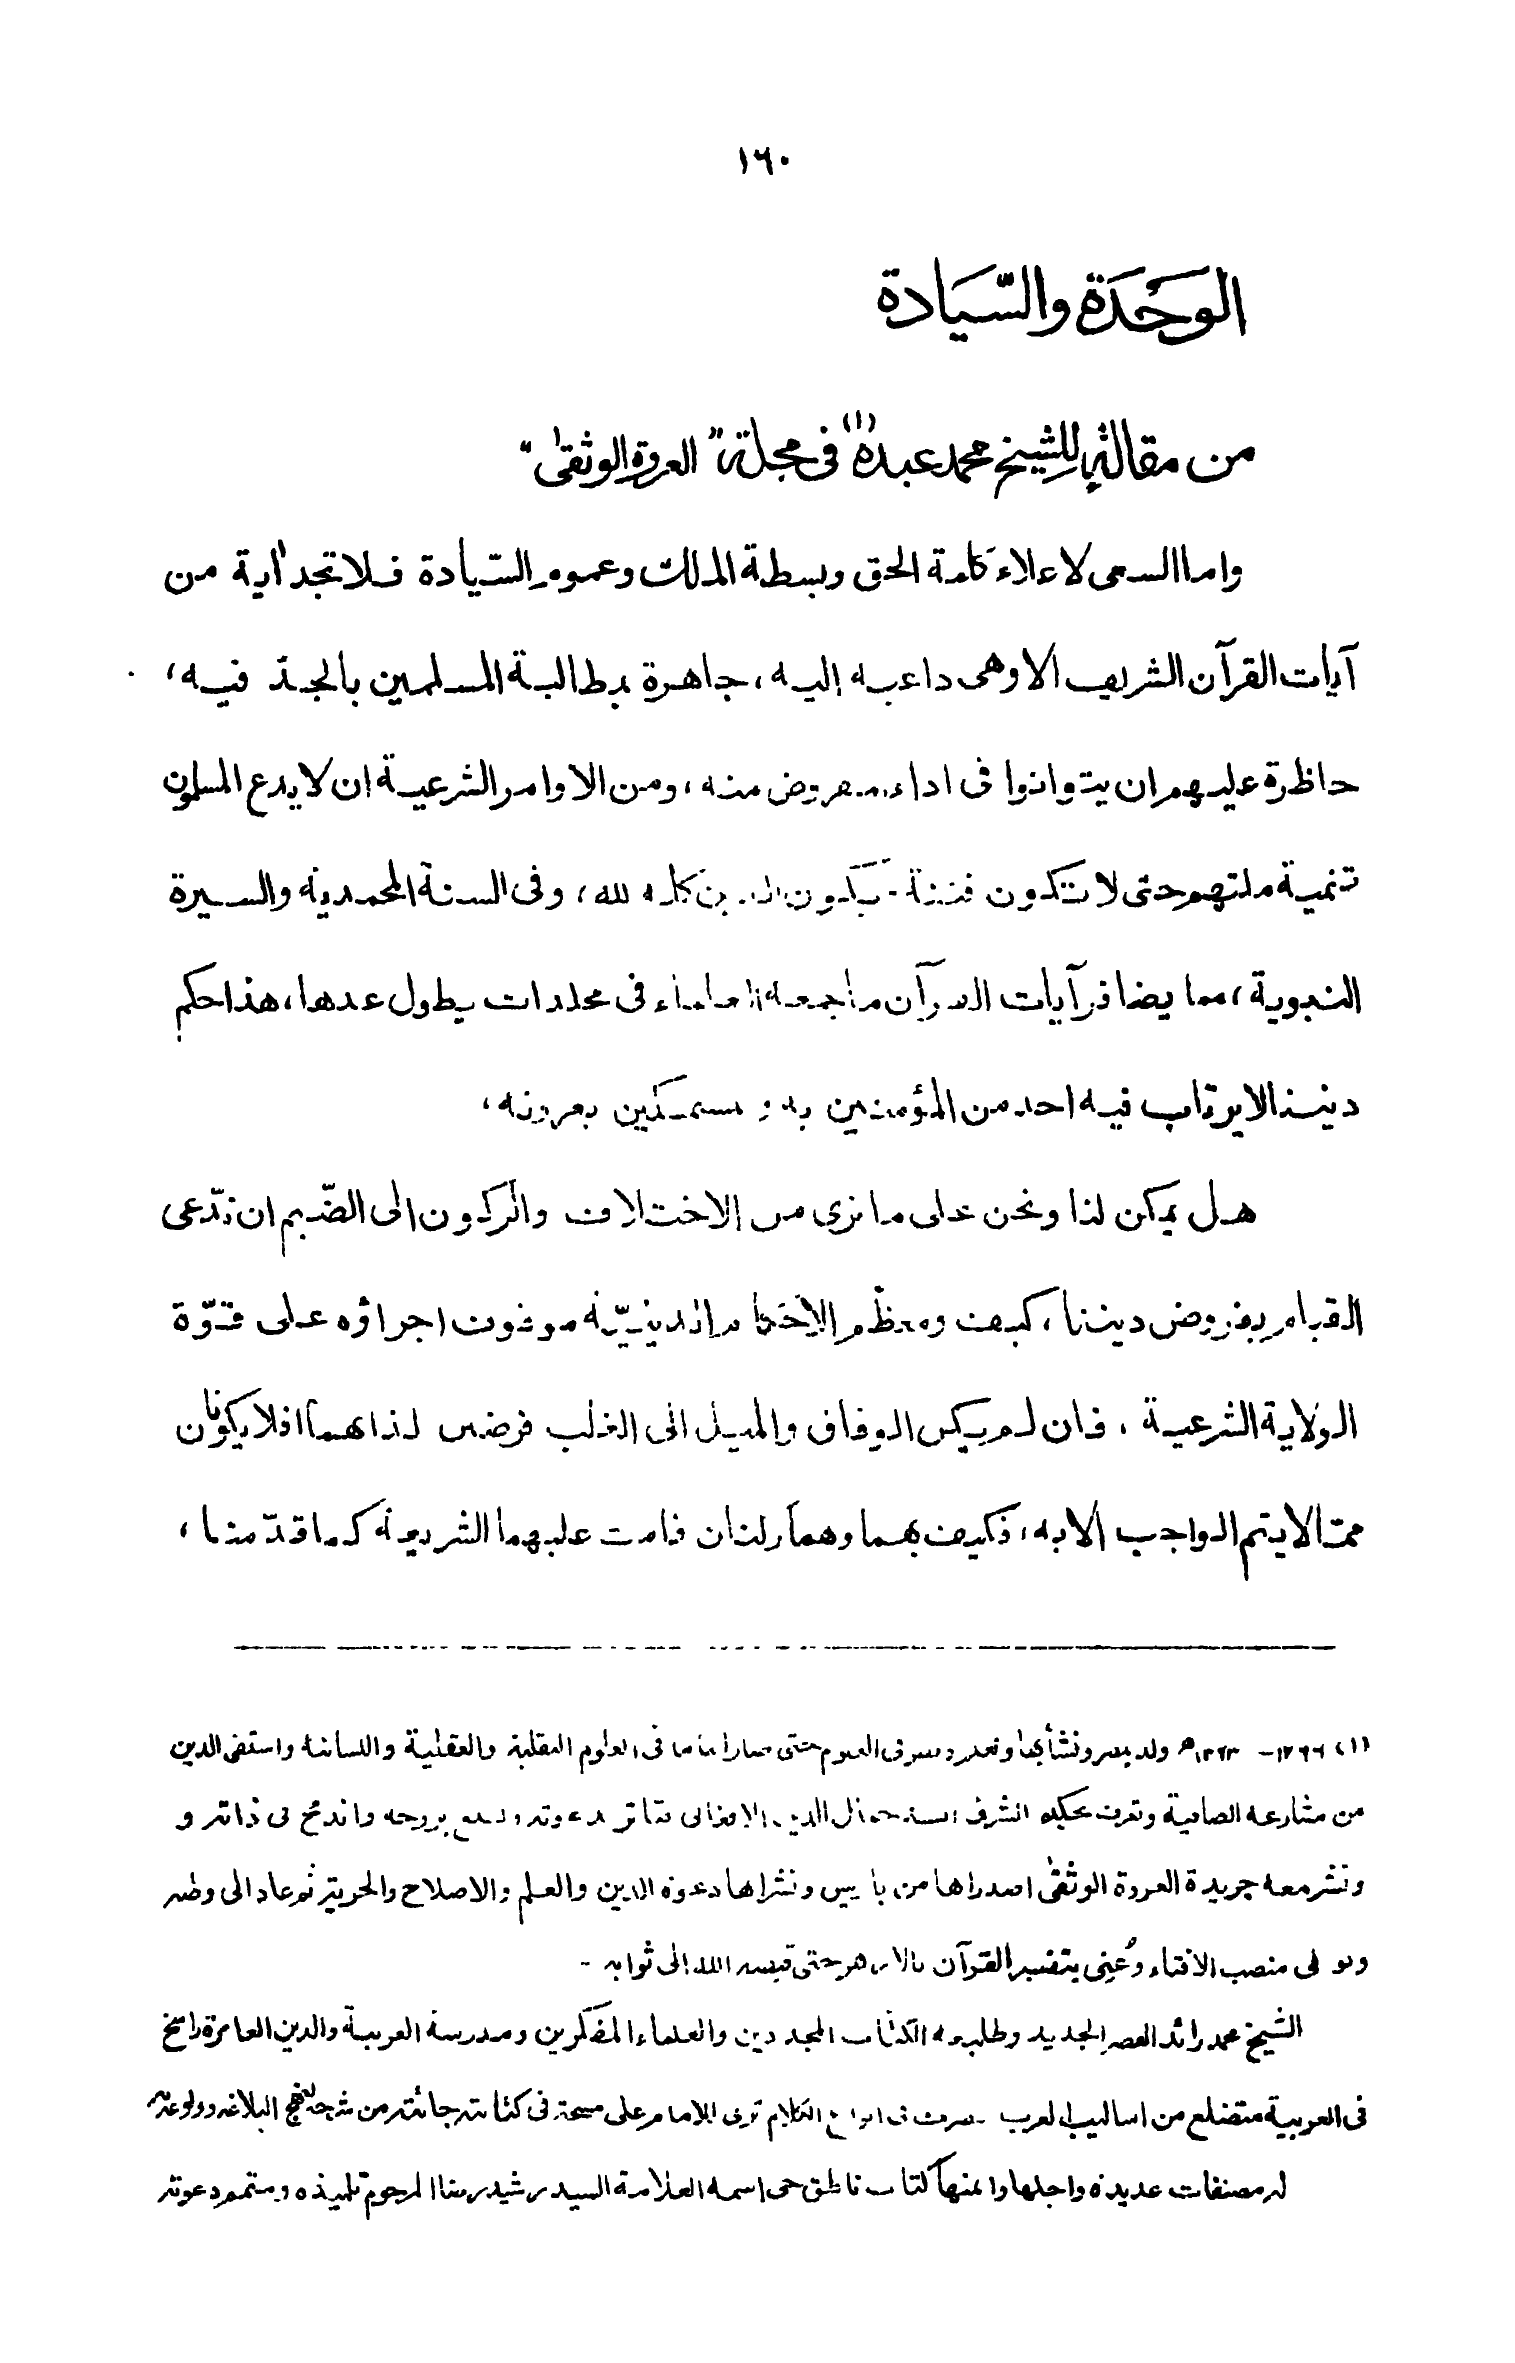 ١٦٠
الوَحْدَة والسّيَادة
من مقالة للشيخ محمد عبده (١) فى مجلة "العروة الوثقىٰ"
واما السعى لاعلاء كلمة الحق وبسطة الملك وعموم السّيادة فلا تجد اٰية من
آيات القرآن الشريف الا وهى داعيه إليه، جاهرة بمطالبة المسلمين بالجدّ فيه،
حاظرة عليهم ان يتوانوا فى اداء مفروض منه، ومن الاوامر الشرعية ان لا يدع المسلمون
تنمية ملتهم حتى لا تكون فتنة ويكون الدين كله لله، وفى السنة المحمدية والسيرة
النبوية، مما يضافر آيات القرآن ما جمعه العلماء فى مجلدات يطول عدها، هذا حكم
ديننا لا يرتاب فيه احد من المؤمنين به و مستمسكين بعروته،
هل يمكن لنا ونحن على ما نرى من الاختلاف والركون الى الضّيم ان ندّعى
القيام بفروض ديننا، كيف ومعظم الاحكام الدينيّة موقوف اجراؤه على قوّة
الولاية الشرعية، فان لم يكن الوفاق والميل الى الغلب فرضين لذاتهما افلا يكونان
ممّا لا يتم الواجب الا به، فكيف بهما وهما ركنان قامت عليهما الشريعة كما قدّمنا،
(١) ١٢٦٦ - ١٣٢٣ھ ولد بمصر ونشأ بها وتعلم فى العلوم حتى صار اماما فى العلوم النقلية والعقلية واللسانية واستقى الدين
من مشارعه الصافية وتعرف بحكيم الشرق السيد جمال الدين الافغانى فتاثر بدعوته وانطبع بروحه واندمج فى ذاته و
ونشر معه جريدة العروة الوثقىٰ اصدراها من باريس ونشراها دعوة الدين والعلم والاصلاح والحرية ثم عاد الى وطنه
وتولى منصب الافتاء وعُنِى بتفسير القرآن بالازهر حتى قبضه الله الى ثوابه -
الشيخ محمد رائد العصر الجديد وطليعه الكتاب المجددين والعلماء المفكرين ومدرسة العربية والدين العامرة راسخ
فى العربية متضلع من اساليب العرب متصرف فى انواع الكلام ترى للامام على مسحة فى كتابته جائته من شرحه لنهج البلاغه وولوعه به
له مصنفات عديدة واجلها كتاب ناطق حى اسمه العلامة السيد رشيد رضا المرحوم تلميذه ومتمم دعوته